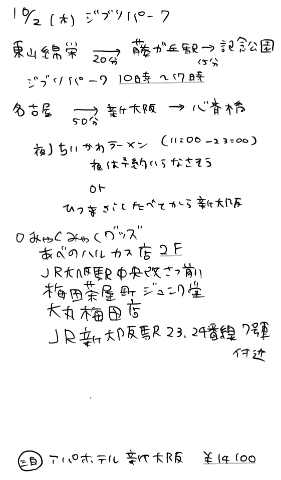 10/2 (木) ジブリパーク
東山線栄 → 藤が丘駅 → 記念公園
20分 15分
ジブリパーク 10時〜17時
名古屋 → 新大阪 → 心斎橋
50分
夜) ちいかわラーメン (11:00-23:00)
夜は予約いらなさそう
or
ひつまぶしたべてから新大阪
○みゃくみゃくグッズ
あべのハルカス店 2F
JR大阪駅中央改さつ前
梅田茶屋町ジュンク堂
大丸梅田店
JR新大阪駅 23,24番線 7号
付近
二日 アパホテル 新大阪 ¥14100